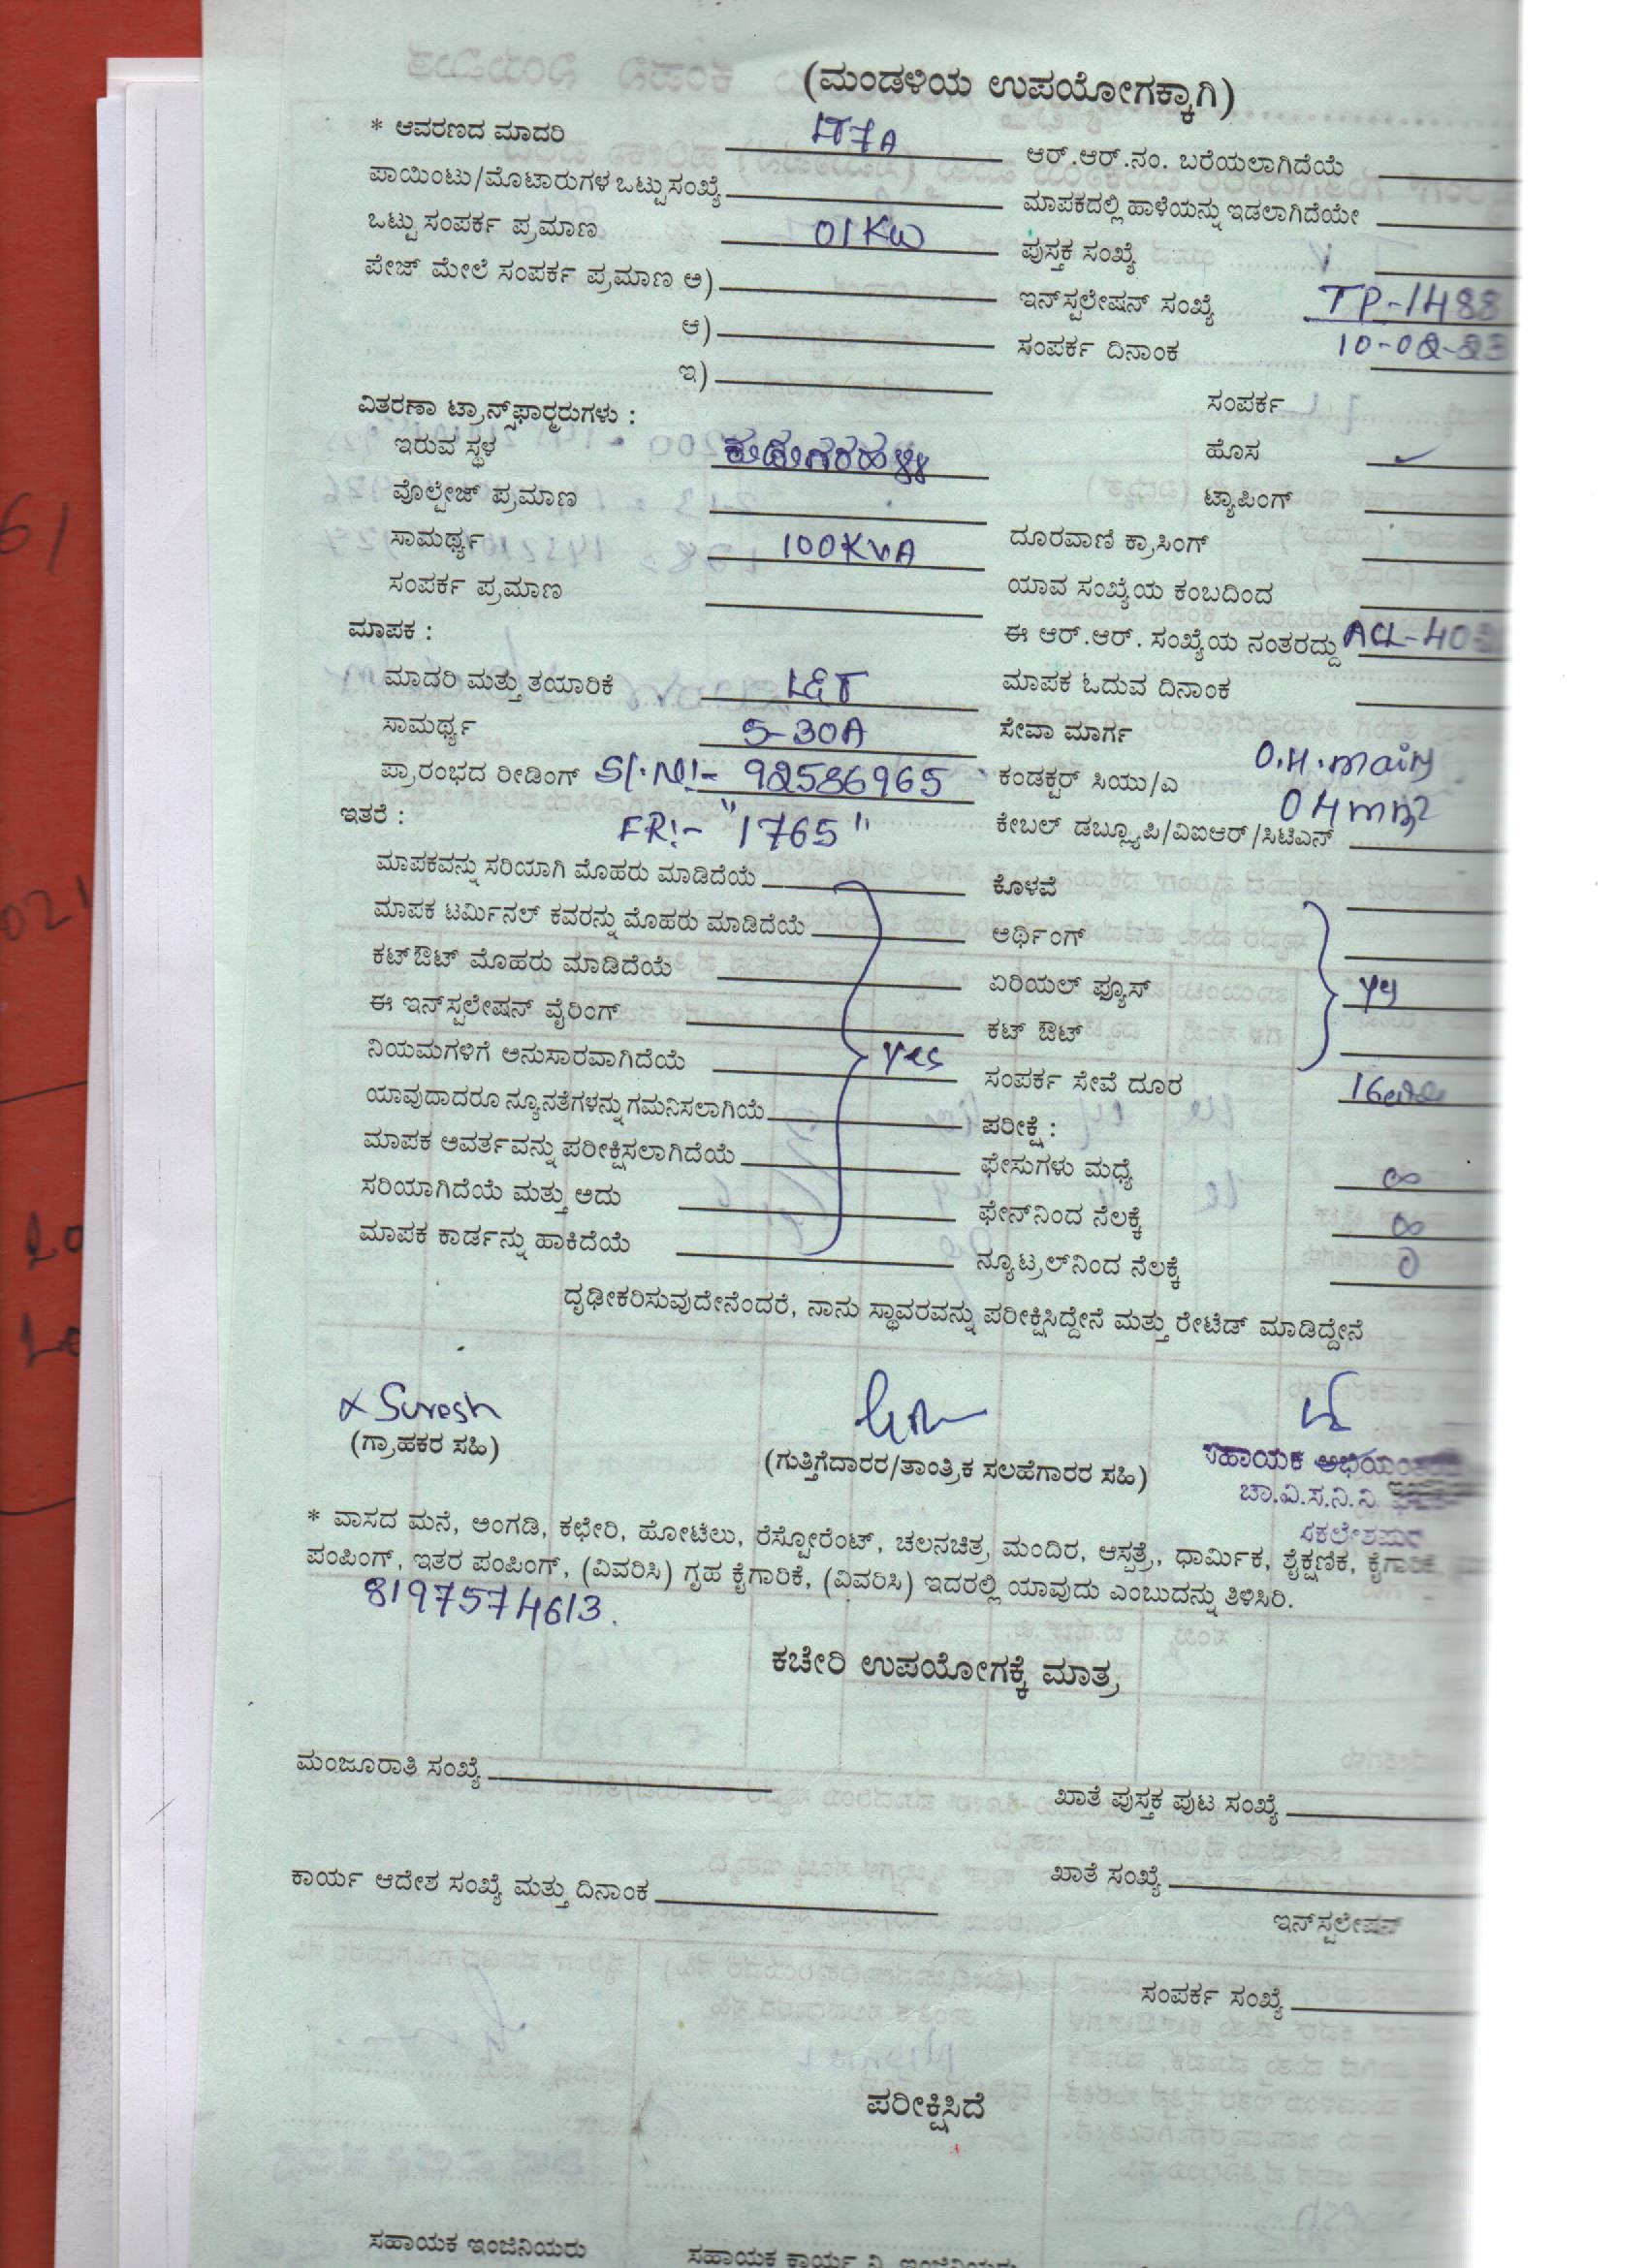 (ಮಂಡಳಿಯ ಉಪಯೋಗಕ್ಕಾಗಿ)
* ಆವರಣದ ಮಾದರಿ LT7A ಆರ್.ಆರ್.ನಂ. ಬರೆಯಲಾಗಿದೆಯೆ
ಪಾಯಿಂಟು/ಮೊಟಾರುಗಳ ಒಟ್ಟು ಸಂಖ್ಯೆ ಮಾಪಕದಲ್ಲಿ ಹಾಳೆಯನ್ನು ಇಡಲಾಗಿದೆಯೇ
ಒಟ್ಟು ಸಂಪರ್ಕ ಪ್ರಮಾಣ 01KW ಪುಸ್ತಕ ಸಂಖ್ಯೆ
ಪೇಜ್ ಮೇಲೆ ಸಂಪರ್ಕ ಪ್ರಮಾಣ ಅ) ಇನ್‌ಸ್ಟಲೇಷನ್ ಸಂಖ್ಯೆ TP-1488
ಆ) ಸಂಪರ್ಕ ದಿನಾಂಕ 10-02-23
ಇ)
ವಿತರಣಾ ಟ್ರಾನ್ಸ್‌ಫಾರ್‍ಮರುಗಳು : ಸಂಪರ್ಕ
ಇರುವ ಸ್ಥಳ ಹೊಸ ✓
ವೊಲ್ಟೇಜ್ ಪ್ರಮಾಣ ಟ್ಯಾಪಿಂಗ್
ಸಾಮರ್ಥ್ಯ 100KVA ದೂರವಾಣಿ ಕ್ರಾಸಿಂಗ್
ಸಂಪರ್ಕ ಪ್ರಮಾಣ ಯಾವ ಸಂಖ್ಯೆಯ ಕಂಬದಿಂದ
ಮಾಪಕ : ಈ ಆರ್.ಆರ್. ಸಂಖ್ಯೆಯ ನಂತರದ್ದು
ಮಾದರಿ ಮತ್ತು ತಯಾರಿಕೆ L&T ಮಾಪಕ ಓದುವ ದಿನಾಂಕ
ಸಾಮರ್ಥ್ಯ 5-30A ಸೇವಾ ಮಾರ್ಗ
ಪ್ರಾರಂಭದ ರೀಡಿಂಗ್ Sl.No:- 92586965 ಕಂಡಕ್ಟರ್ ಸಿಯು/ಎ O.H.
ಇತರೆ : FR:- "1765" ಕೇಬಲ್ ಡಬ್ಲ್ಯೂಪಿ/ವಿಐಆರ್/ಸಿಟಿಎನ್ 04mm2
ಮಾಪಕವನ್ನು ಸರಿಯಾಗಿ ಮೊಹರು ಮಾಡಿದೆಯೆ ಕೊಳವೆ
ಮಾಪಕ ಟರ್ಮಿನಲ್ ಕವರನ್ನು ಮೊಹರು ಮಾಡಿದೆಯೆ ಅರ್ಥಿಂಗ್
ಕಟ್‌ಔಟ್ ಮೊಹರು ಮಾಡಿದೆಯೆ ಏರಿಯಲ್ ಫ್ಯೂಸ್
ಈ ಇನ್‌ಸ್ಟಲೇಷನ್ ವೈರಿಂಗ್ ಕಟ್ ಔಟ್
ನಿಯಮಗಳಿಗೆ ಅನುಸಾರವಾಗಿದೆಯೆ yes ಸಂಪರ್ಕ ಸೇವೆ ದೂರ
ಯಾವುದಾದರೂ ನ್ಯೂನತೆಗಳನ್ನು ಗಮನಿಸಲಾಗಿಯೆ ಪರೀಕ್ಷೆ :
ಮಾಪಕ ಅವರ್ತವನ್ನು ಪರೀಕ್ಷಿಸಲಾಗಿದೆಯೆ ಫೇಸುಗಳು ಮಧ್ಯೆ ∞
ಸರಿಯಾಗಿದೆಯೆ ಮತ್ತು ಅದು ಫೇನ್‌ನಿಂದ ನೆಲಕ್ಕೆ ∞
ಮಾಪಕ ಕಾರ್ಡನ್ನು ಹಾಕಿದೆಯೆ ನ್ಯೂಟ್ರಲ್‌ನಿಂದ ನೆಲಕ್ಕೆ 0
ದೃಢೀಕರಿಸುವುದೇನೆಂದರೆ, ನಾನು ಸ್ಥಾವರವನ್ನು ಪರೀಕ್ಷಿಸಿದ್ದೇನೆ ಮತ್ತು ರೇಟೆಡ್ ಮಾಡಿದ್ದೇನೆ
Suresh
(ಗ್ರಾಹಕರ ಸಹಿ) (ಗುತ್ತಿಗೆದಾರರ/ತಾಂತ್ರಿಕ ಸಲಹೆಗಾರರ ಸಹಿ) ಸಹಾಯಕ
ಚಾ.ವಿ.ಸ.ನಿ.ನಿ
ಸಕಲೇಶಪುರ
* ವಾಸದ ಮನೆ, ಅಂಗಡಿ, ಕಛೇರಿ, ಹೋಟೆಲು, ರೆಸ್ಟೋರೆಂಟ್, ಚಲನಚಿತ್ರ ಮಂದಿರ, ಆಸ್ಪತ್ರೆ, ಧಾರ್ಮಿಕ, ಶೈಕ್ಷಣಿಕ, ಕೈಗಾರಿಕೆ,
ಪಂಪಿಂಗ್, ಇತರ ಪಂಪಿಂಗ್, (ವಿವರಿಸಿ) ಗೃಹ ಕೈಗಾರಿಕೆ, (ವಿವರಿಸಿ) ಇದರಲ್ಲಿ ಯಾವುದು ಎಂಬುದನ್ನು ತಿಳಿಸಿರಿ.
8197574613.
ಕಚೇರಿ ಉಪಯೋಗಕ್ಕೆ ಮಾತ್ರ
ಮಂಜೂರಾತಿ ಸಂಖ್ಯೆ ಖಾತೆ ಪುಸ್ತಕ ಪುಟ ಸಂಖ್ಯೆ
ಕಾರ್ಯ ಆದೇಶ ಸಂಖ್ಯೆ ಮತ್ತು ದಿನಾಂಕ ಖಾತೆ ಸಂಖ್ಯೆ
ಇನ್‌ಸ್ಟಲೇಷನ್
ಸಂಪರ್ಕ ಸಂಖ್ಯೆ
ಪರೀಕ್ಷಿಸಿದೆ
ಸಹಾಯಕ ಇಂಜಿನಿಯರು ಸಹಾಯಕ ಕಾರ್ಯ ನಿ. ಇಂಜಿನಿಯರು